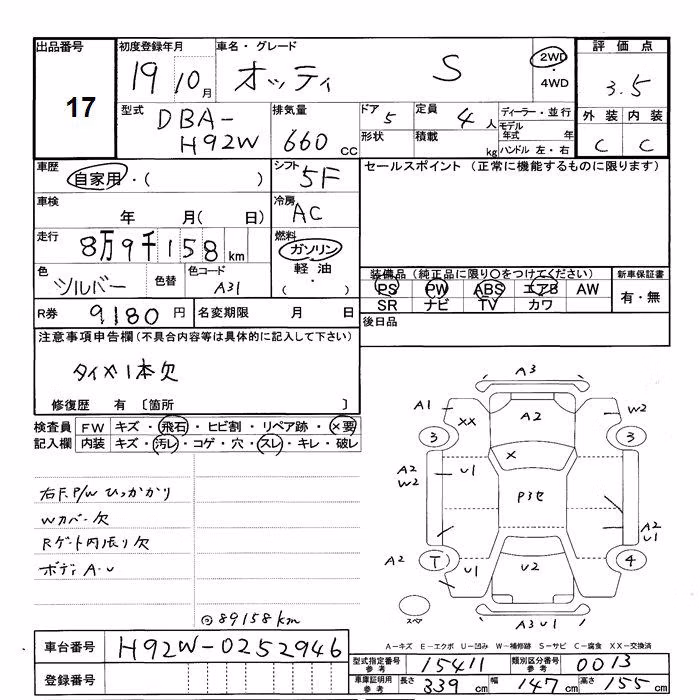 出品番号 初度登録年月 車名・グレード 評価点
17 19 10月 オッティ S 2WD・4WD 3.5
型式 DBA-H92W 排気量 660 CC ドア 5 定員 4人 ディーラー・並行
形状 積載 kg モデル年式 年 ハンドル 左・右
外装 内装
C C
車歴 自家用・( ) シフト 5F セールスポイント (正常に機能するものに限ります)
車検 年 月( 日) 冷房 AC
走行 8万9千158km 燃料 ガソリン 軽油・( )
色 ツルバー 色替 色コード A31
装備品 (純正品に限り○をつけてください) 新車保証書
PS PW ABS エアB AW 有・無
SR ナビ TV カワ
R券 9,180円 名変期限 月 日 後日品
注意事項申告欄(不具合内容等は具体的に記入して下さい)
タイヤ1本欠
修復歴 有〔箇所 〕
検査員記入欄 FW キズ・飛石・ヒビ割・リペア跡・×要
内装 キズ・汚レ・コゲ・穴・スレ・キレ・破レ
右F.P/Wひっかかり
Wカバー欠
Rゲート内張り欠
ボディA・U
◎89158km
A3
A1 XX A2 W2
3 X 3
A2 W2 U1 P3セ
A2 U1
A2 T U1 U2 4
スペア
A3 U1
A-キズ E-エクボ U-凹み W-補修跡 S-サビ C-腐食 XX-交換済
車台番号 H92W-0252946
登録番号
型式指定番号 参考 15411 類別区分番号 参考 0013
車庫証明用 参考 長さ 339cm 幅 147cm 高さ 155cm